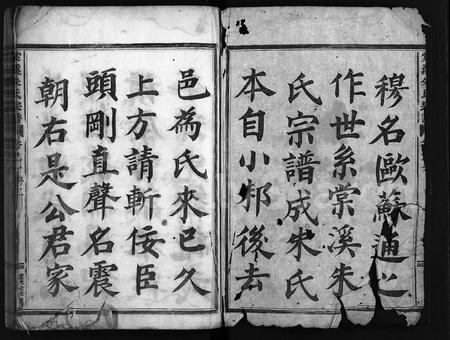 穆名歐蘇通之
作世系棠溪朱
氏宗譜成朱氏
本自小邾後去
邑為氏來已久
上方請斬佞臣
頭剛直聲名震
朝右是公君家